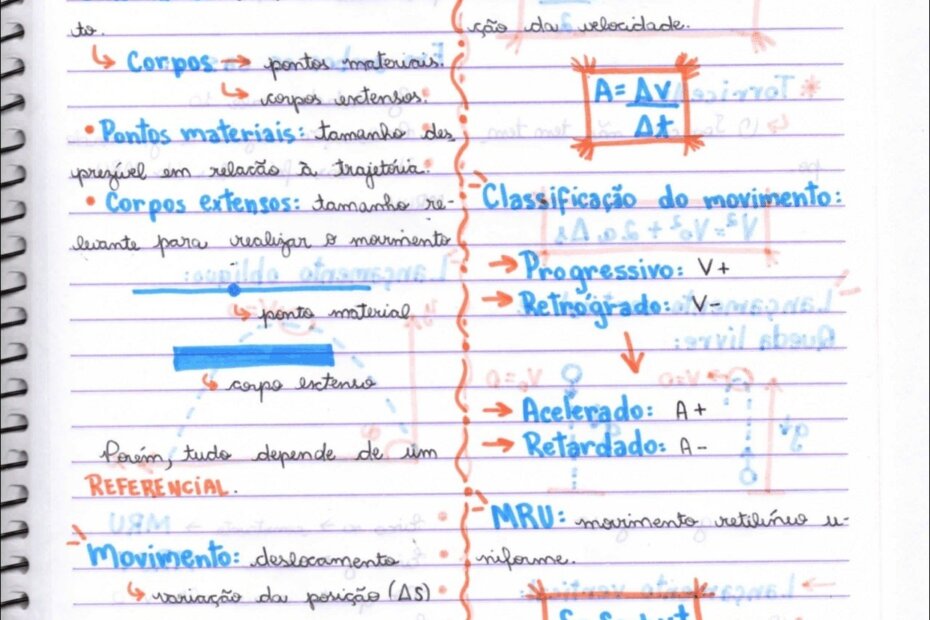 to.
Corpos → pontos materiais.
corpos extensos.
• Pontos materiais: tamanho des
prezível em relacão à trajetória.
• Corpos extensos: tamanho re-
levante para realizar o movimento
ponto material
corpo extenso
Porém, tudo depende de um
REFERENCIAL.
Movimento: deslocamento
variação da posição (ΔS)
ção da velocidade.
A = Δv
Δt
Classificação do movimento:
→ Progressivo: V+
→ Retrógrado: V-
→ Acelerado: A+
→ Retardado: A-
MRU: movimento retilíneo u-
niforme.